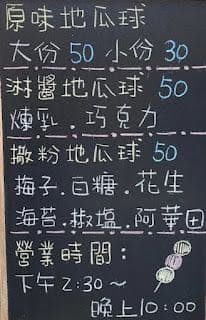 原味地瓜球
大份50 小份30
淋醬地瓜球 50
煉乳.巧克力
撒粉地瓜球50
梅子.白糖.花生
海苔.椒塩.阿華田
營業時間:
下午2:30~
晚上10:00